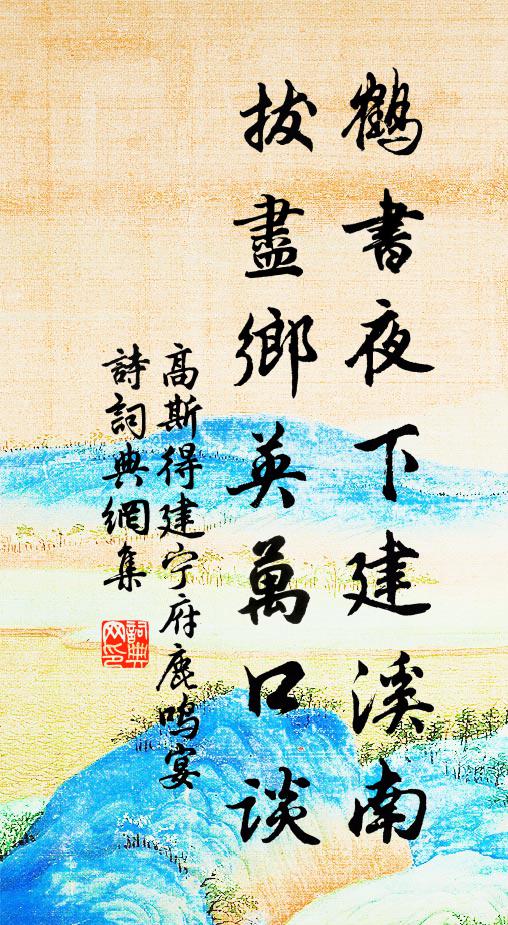 鶴書夜下建溪南
拔盡鄉英萬口談
高斯得建宁府鹿鸣宴
詩詞典網集